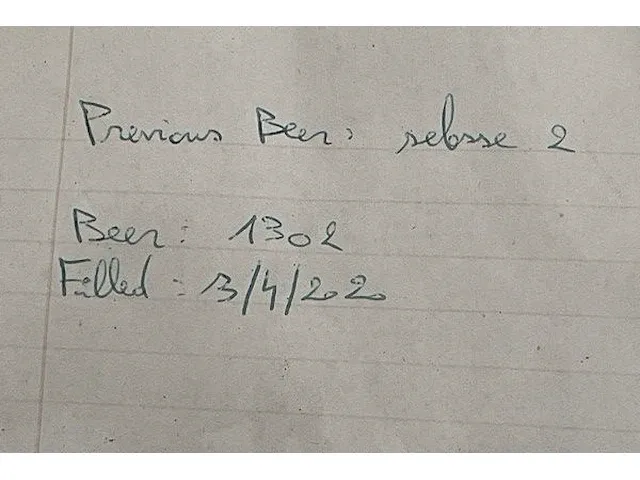 Previous Beer: selosse 2
Beer: 1302
Filled: 3/4/2020